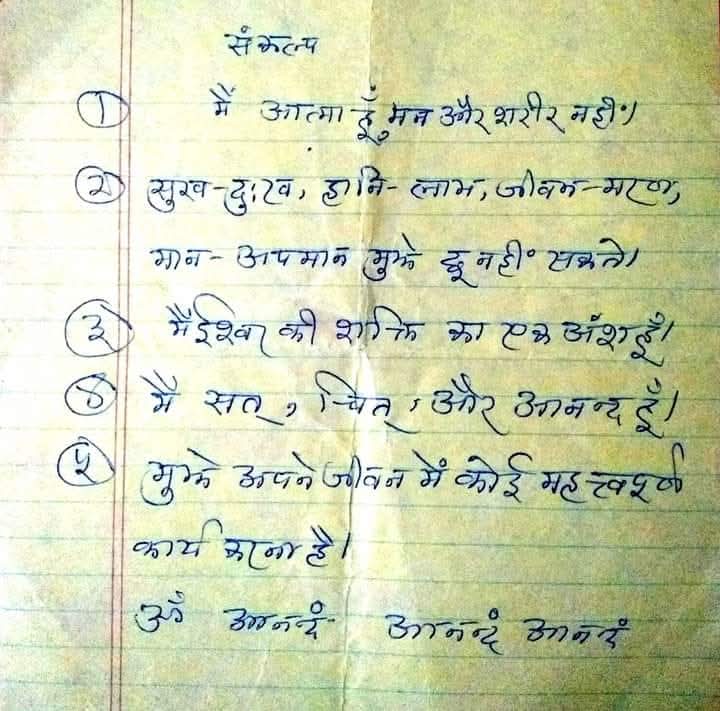 संकल्प
① मैं आत्मा हूँ, मन और शरीर नहीं।
② सुख-दुःख, हानि-लाभ, जीवन-मरण,
मान-अपमान मुझे छू नहीं सकते।
③ मैं ईश्वर की शक्ति का एक अंश हूँ।
④ मैं सत्, चित्, और आनन्द हूँ।
⑤ मुझे अपने जीवन में कोई महत्त्वपूर्ण
कार्य करना है।
ॐ आनन्दं आनन्दं आनन्दं